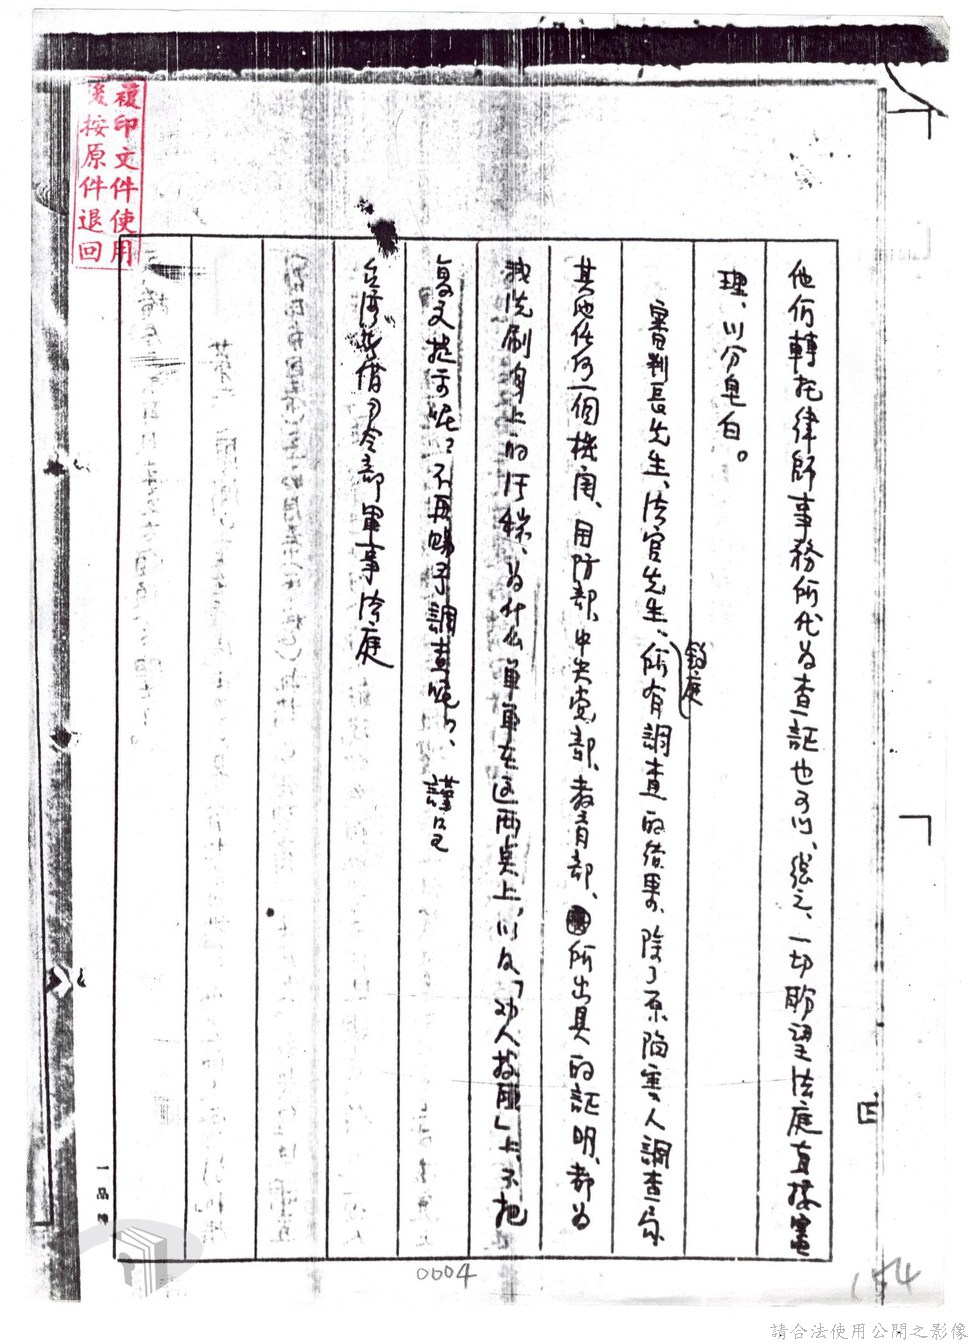 複印文件使用
後按原件退回
他們轉托律師事務所代为查証也可以、總之、一切盼望法庭直接審
理、以分皂白。
審判長先生、法官先生、鈞庭所有調查的結果、除了原陷害人調查局
其他任何一個機関、国防部、中央党部、教育部、所出具的証明、都为
我洗刷身上的汙穢、为什么單單在这兩奌上，以及「劝人投匪」上、不把
复文提示呢？不再賜予調查呢？、謹呈
台湾警備司令部軍事法庭
一品牌
0004
154
請合法使用公開之影像